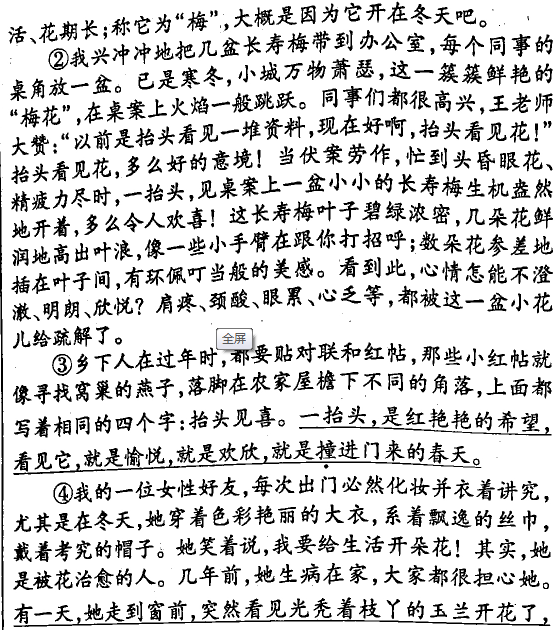 活、花期长;称它为“梅”,大概是因为它开在冬天吧。
②我兴冲冲地把几盆长寿梅带到办公室,每个同事的
桌角放一盆。已是寒冬,小城万物萧瑟,这一簇簇鲜艳的
“梅花”,在桌案上火焰一般跳跃。同事们都很高兴,王老师
大赞:“以前是抬头看见一堆资料,现在好啊,抬头看见花!”
抬头看见花,多么好的意境!当伏案劳作,忙到头昏眼花、
精疲力尽时,一抬头,见桌案上一盆小小的长寿梅生机盎然
地开着,多么令人欢喜!这长寿梅叶子碧绿浓密,几朵花鲜
润地高出叶浪,像一些小手臂在跟你打招呼;数朵花参差地
插在叶子间,有环佩叮当般的美感。看到此,心情怎能不澄
澈、明朗、欣悦?肩疼、颈酸、眼累、心乏等,都被这一盆小花
儿给疏解了。
全屏
③乡下人在过年时,都要贴对联和红帖,那些小红帖就
像寻找窝巢的燕子,落脚在农家屋檐下不同的角落,上面都
写着相同的四个字:抬头见喜。一抬头,是红艳艳的希望,
看见它,就是愉悦,就是欢欣,就是撞进门来的春天。
④我的一位女性好友,每次出门必然化妆并衣着讲究,
尤其是在冬天,她穿着色彩艳丽的大衣,系着飘逸的丝巾,
戴着考究的帽子。她笑着说,我要给生活开朵花!其实,她
是被花治愈的人。几年前,她生病在家,大家都很担心她。
有一天,她走到窗前,突然看见光秃着枝丫的玉兰开花了,